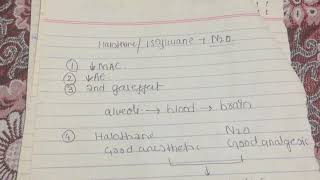 Halothane/ Isoflurane + N2O
① ↓MAC
② ↓AE
③ 2nd gas effect
alveoli → blood → brain
④ Halothane N2O
Good anesthetic Good analgesic